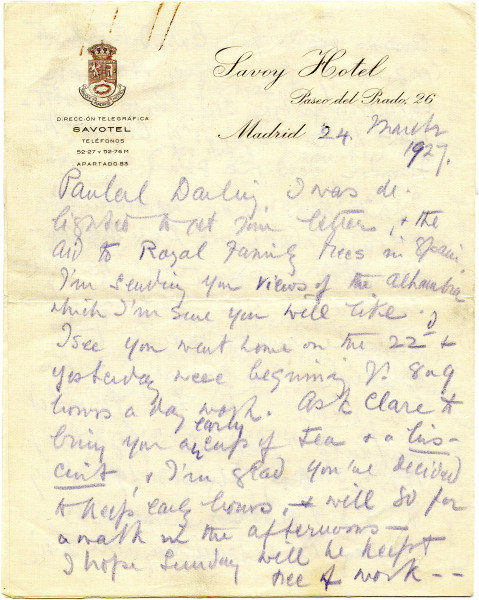 Savoy Hotel
Paseo del Prado, 26
Madrid 24. March
1927.
DIRECCIÓN TELEGRÁFICA
SAVOTEL
TELÉFONOS
52-27 y 52-76 M.
APARTADO 85
Darling, I was de-
lighted to get your letters, & the
aid to Royal Family trees in Spain
I'm sending you views of the Alhambra
which I'm sure you will like.
I see you went home on the 22d &
yesterday were beginning yr. 8 or 9
hours a day work. Ask Clare to
bring you an early cup of tea & a bis-
cuit, & I'm glad you've decided
to keep early hours, & will go for
a walk in the afternoons —
I hope Sunday will be kept
free of work --